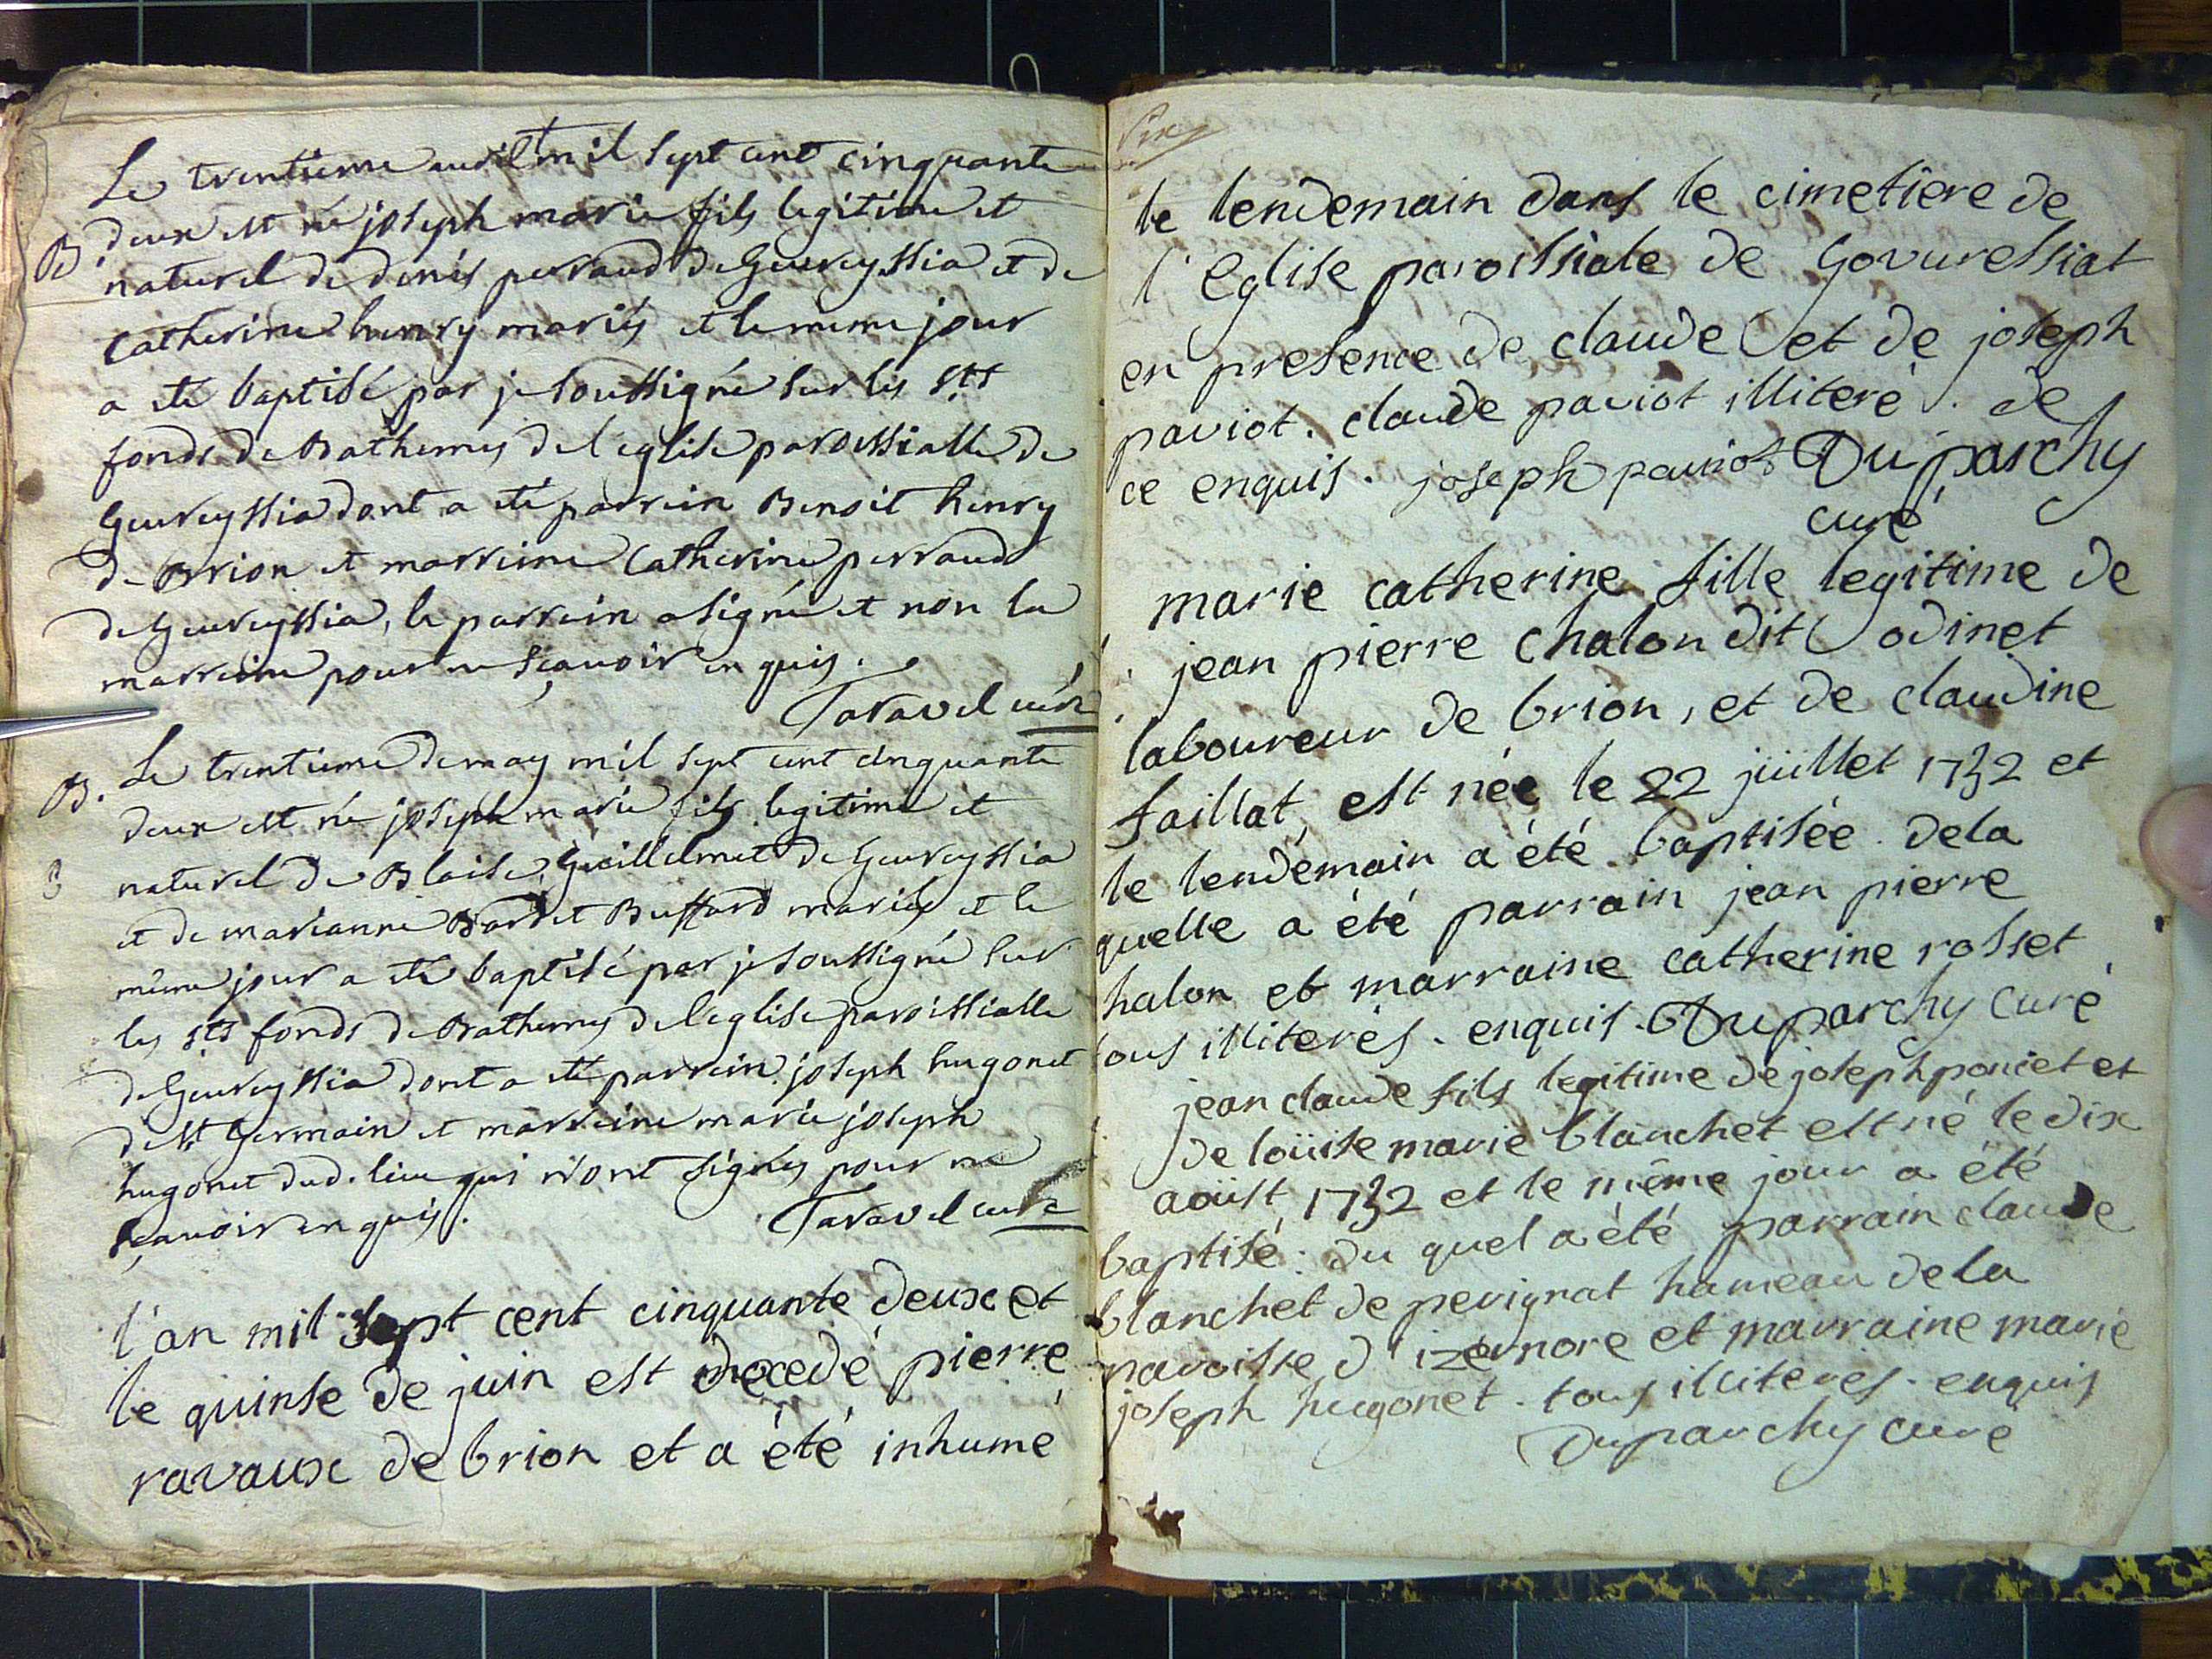 Le trentieme avril mil sept cent cinquante
B. deux est né joseph marie fils legitime et
naturel de denis perraud de Geureyssia et de
Catherine henry mariés et le meme jour
a été baptisé par je soussigné sur les sts
fonds de Bathemes de l'eglise paroissialle de
Geureyssia dont a été parrein Benoit henry
de Brion et marreine Catherine perraud
de Geureyssia, le parrein a signé et non la
marreine pour ne sçavoir en quis.
Taravel curé
B. Le trentieme de may mil sept cent cinquante
deux est né joseph marie fils legitime et
naturel de Blaise Guillelmet de Geureyssia
et de marianne Bardet Buffard mariés et le
meme jour a été baptisé par je soussigné sur
les sts fonds de Bathemes de l'eglise paroissialle
de Geureyssia dont a été parrein joseph hugonet
de st Germain et marreine marie joseph
hugonet dud. lieu qui n'ont signés pour ne
sçavoir en quis.
Taravel curé
l'an mil sept cent cinquante deux et
le quinse de juin est decedé pierre
ravaux de brion et a été inhumé
le lendemain dans le cimetiere de
l'Eglise paroissiale de Govuressiat
en presence de claude et de joseph
paviot. claude paviot illiteré. de
ce enquis. joseph paviot Duparchy
curé
marie catherine fille legitime de
jean pierre chalon dit odinet
laboureur de brion, et de claudine
faillat, est née le 22 juillet 1752 et
le lendemain a été baptisée. dela
quelle a été parrain jean pierre
halon et marraine catherine rosset
tous illiterés. enquis. Duparchy Curé
jean claude fils legitime de joseph poncet et
de loüise marie blanchet est né le dix
aoüst 1752 et le même jour a été
baptisé. du quel a été parrain claude
blanchet de perignat hameau dela
paroisse d'izernore et marraine marie
joseph hugonet. tous illiterés. enquis
Duparchy curé